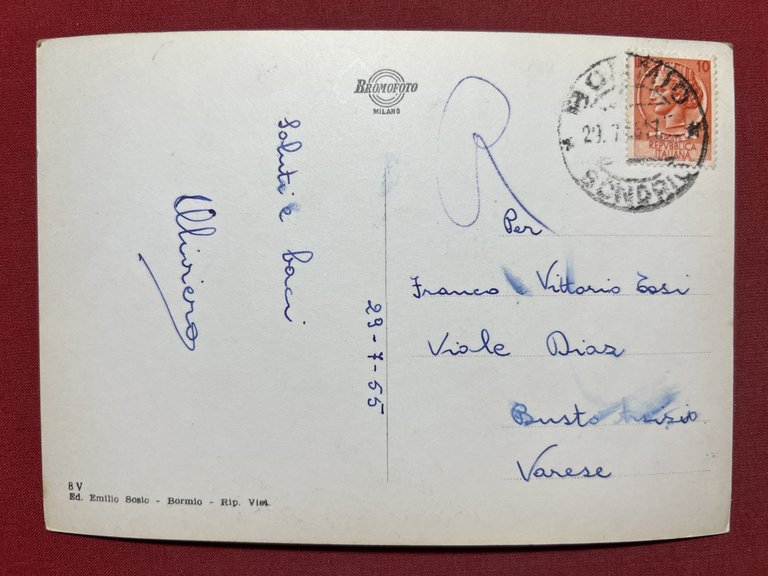 BROMOFOTO
MILANO
Saluti e baci
Oliviero
29-7-55
Per
Franco Vittorio Tosi
Viale Diaz
Busto Arsizio
Varese
10
REPUBBLICA
ITALIANA
SONDRIO
8 V
Ed. Emilio Sosio - Bormio - Rip. Viet.